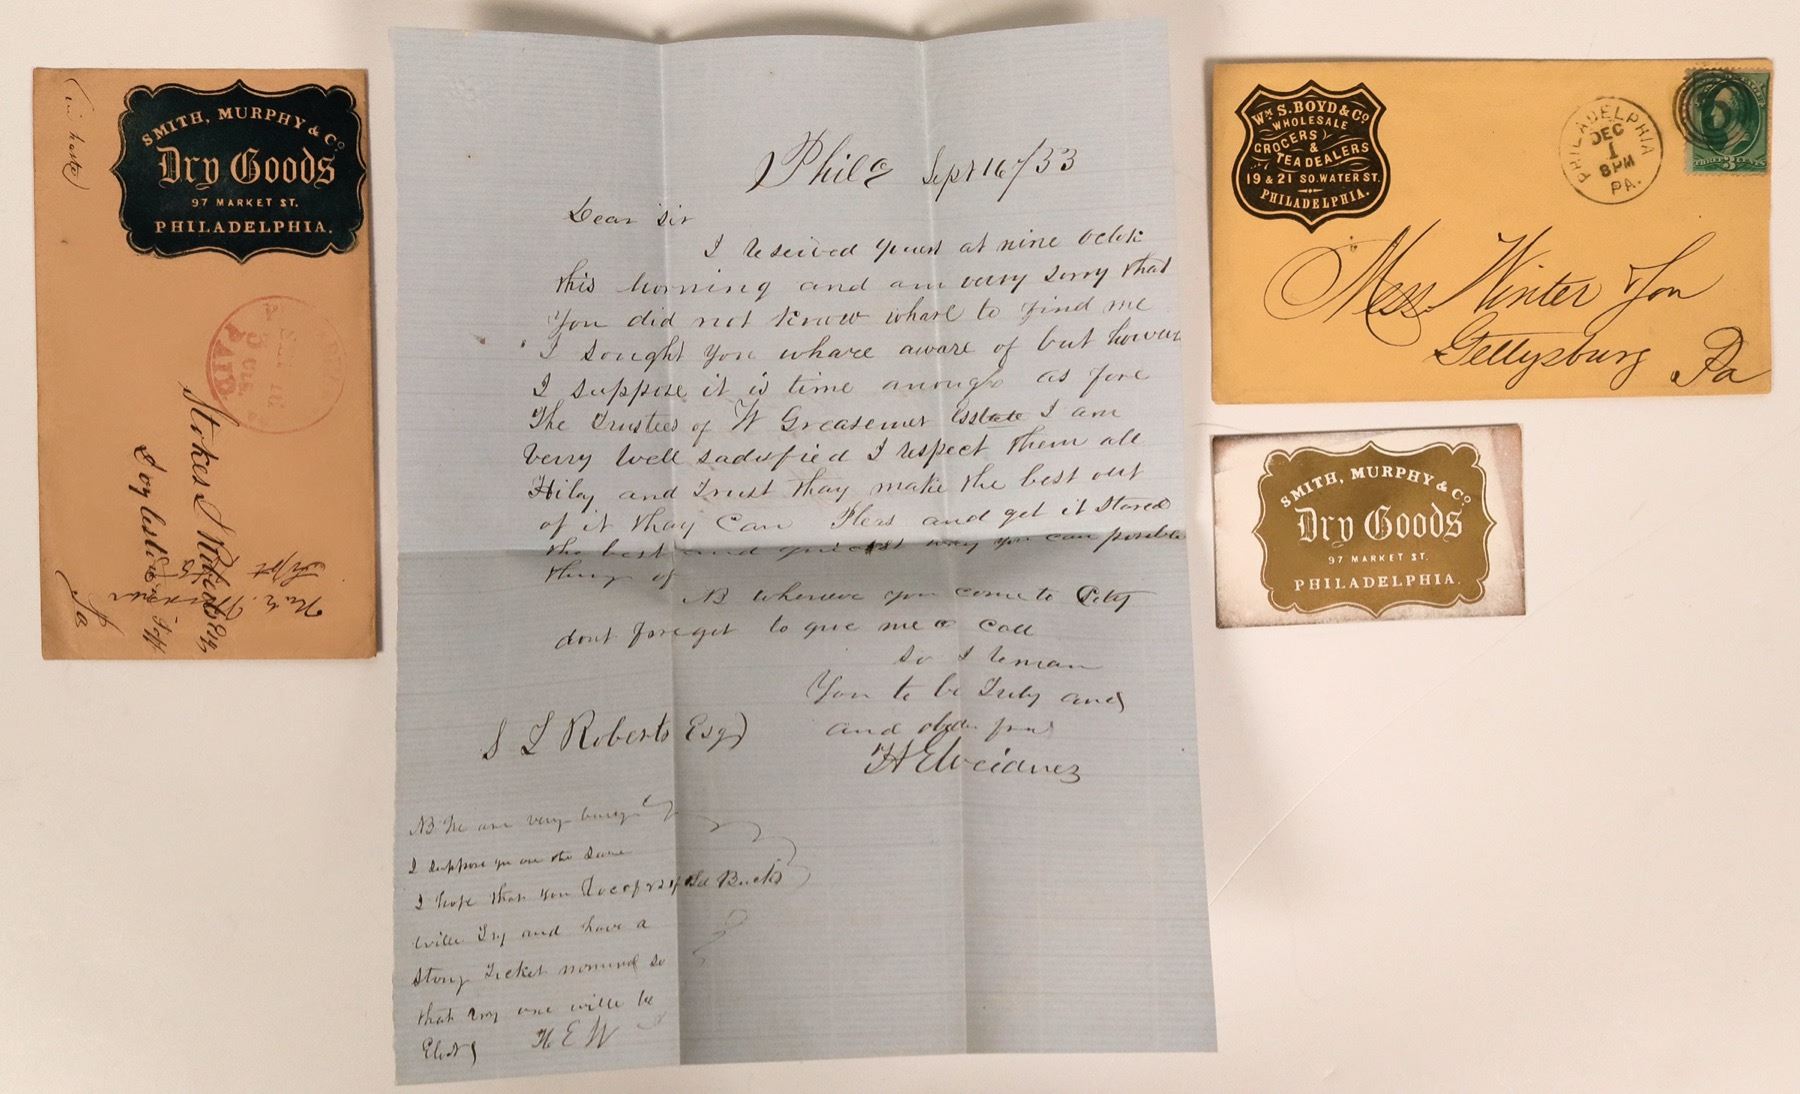 (in haste)
SMITH, MURPHY & Co
Dry Goods
97 MARKET ST.
PHILADELPHIA.
3 cts
PAID
Stokes L Roberts Esq
Doylestown
Pa
Phila Sept 16/53
Dear sir
I reseived yours at nine oclok
this morning and am very sorry that
You did not know whare to find me
I sought you whare aware of but howev
I suppose it is time anough as fore
The Trustees of W Greasemer Estate I am
Verry well sadisfied I respect them all
Hiley and Trust thay make the best out
of it thay Can Pleas and get it stored
the best and quickest way you can posible
thing of
NB whenever you come to City
dont foreget to give me a call
So I reman
You to be Truly and
and
H E Weidner
S L Roberts Esq
NB We are very busy
I suppose you are the same
I hope that you of old Bucks
wille Try and have a
Stong Ticket nomined so
that evry one wille be
Elected
H E W
Wm S. BOYD & Co
WHOLESALE
GROCERS
&
TEA DEALERS
19 & 21 SO. WATER ST.
PHILADELPHIA.
PHILADELPHIA
DEC
1
8 PM
PA.
THREE 3 CENTS
Mess. Winter & Son
Gettysburg
Pa
SMITH, MURPHY & Co
Dry Goods
97 MARKET ST.
PHILADELPHIA.